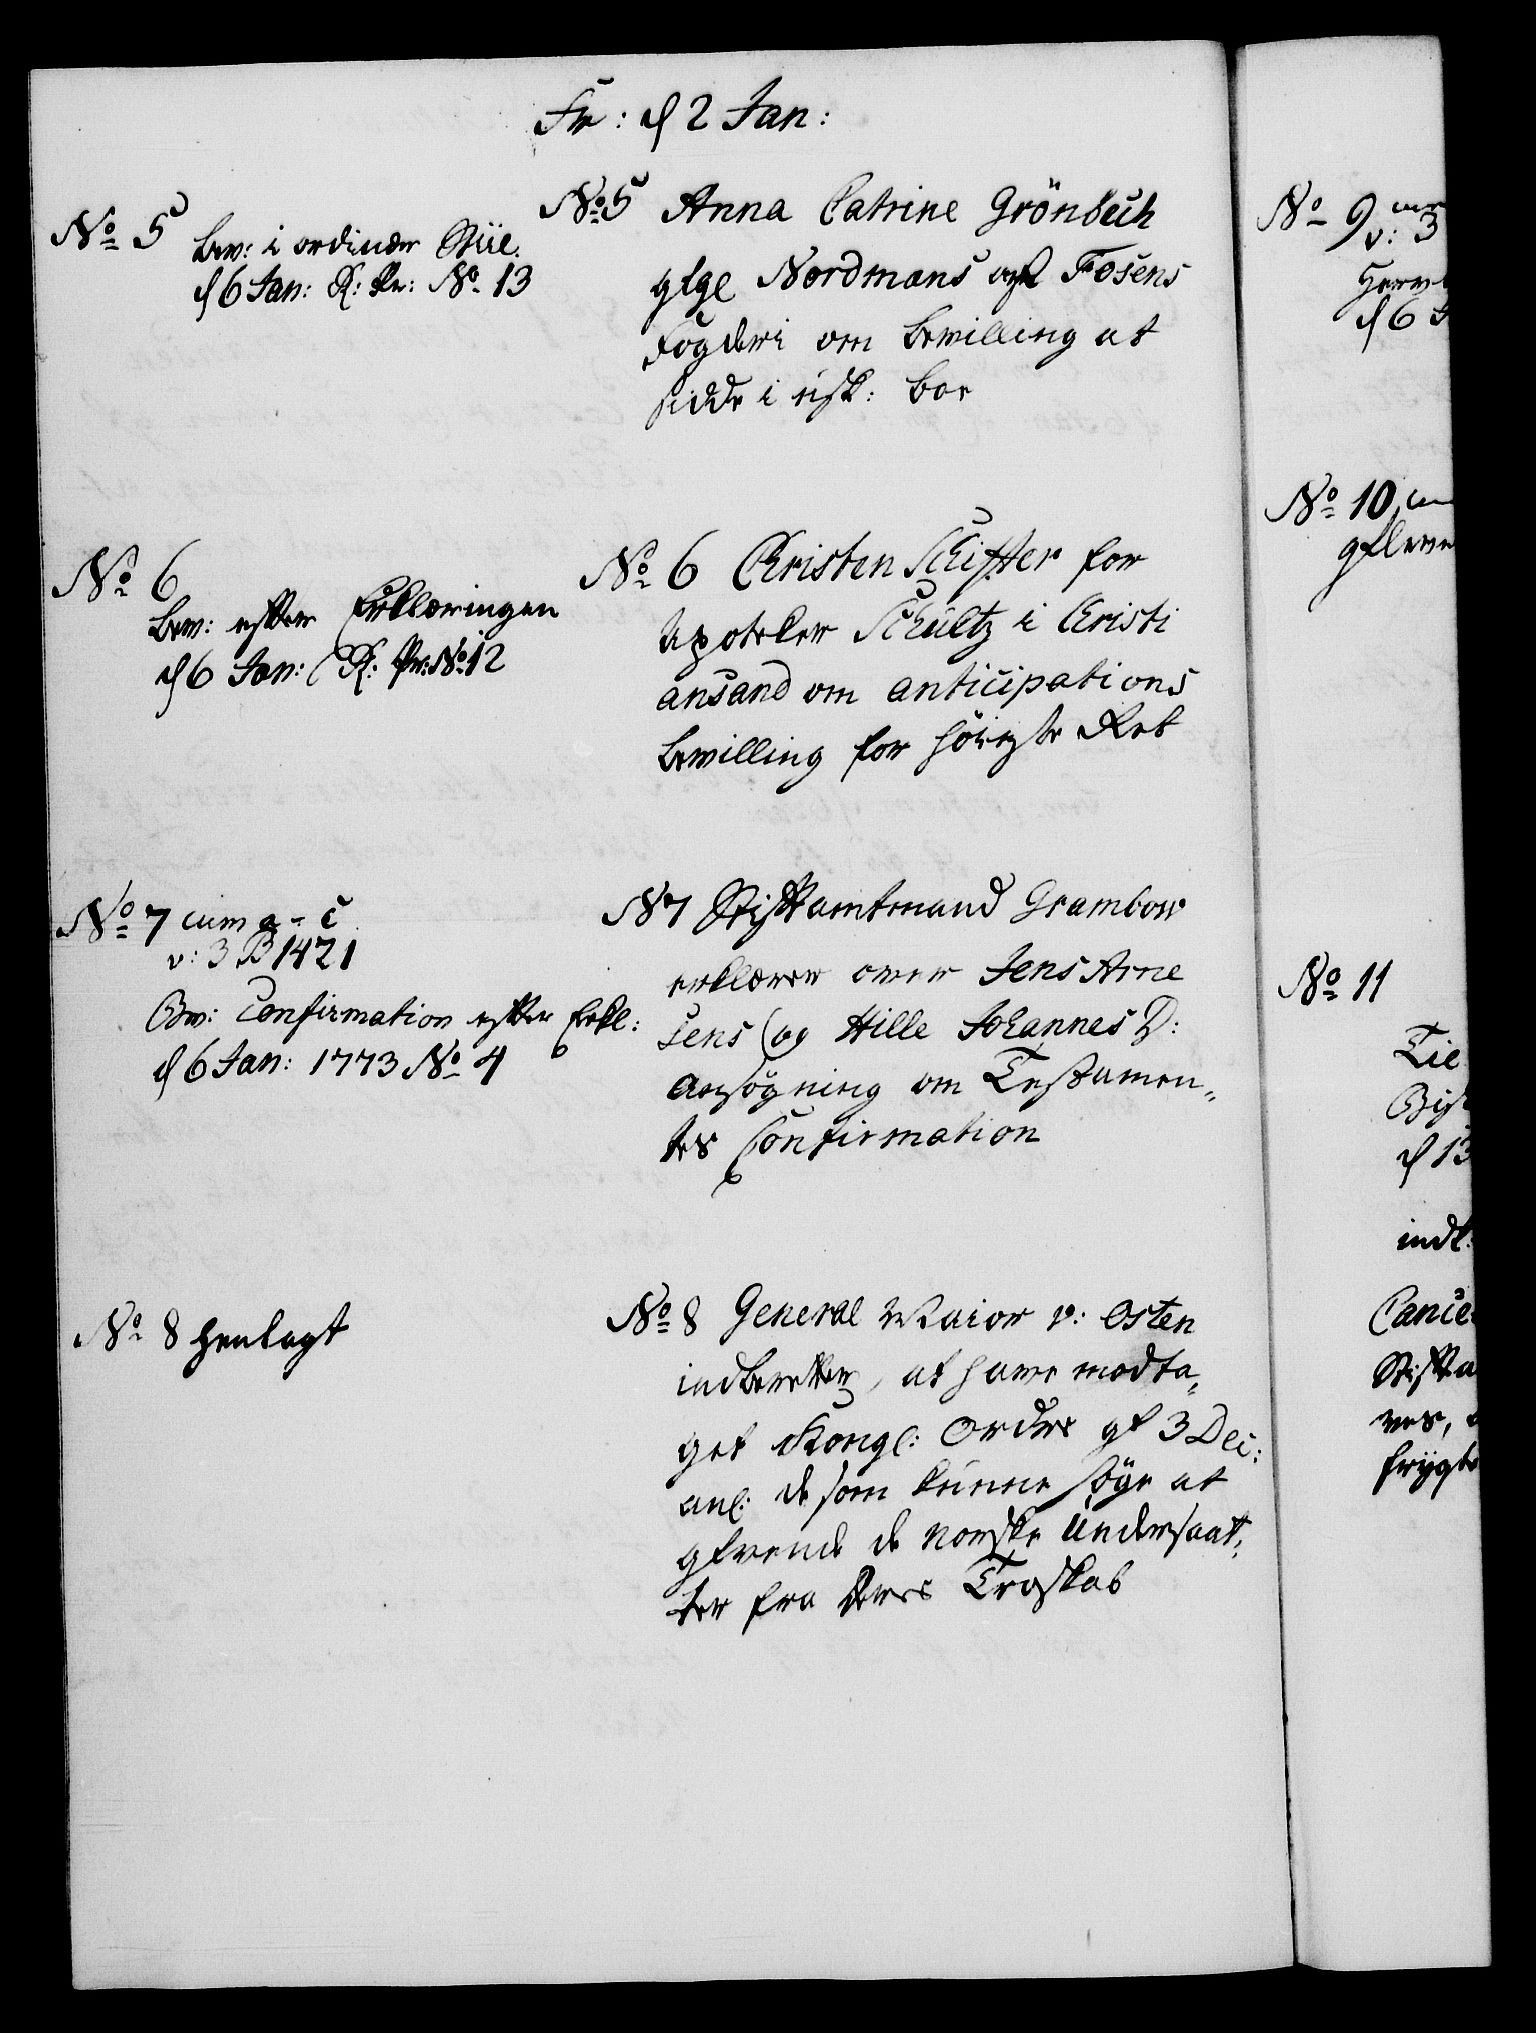 Fr: d 2 Jan:
No 5
Bev: i ordinær Stiil.
d 6 Jan: K: Pr: No 13
No 5 Anna Catrine Grönbech
Nordmørs og Fosens
Fogderi om Bevilling at
sidde i usk: Boe
No 6
Bev: efter Erklæringen
d 6 Jan: K: Pr: No 12
No 6 Christen Schifter for
Apoteker Schultz i Christi
ansand om anticipations
Bevilling for höieste Ret
No 7 cum a - c
v: 3 B 1421
Bev: Confirmation efter Erkl:
d 6 Jan: 1773 No 4
No 7 Stiftamtmand Grambow
erklærer over Jens Arne
sens og Hille Johannes D:
Ansögning om Testamen„
tes Confirmation
No 8 henlagt
No 8 General Maior v: Osten
indberetter, at have modta„
get Kongl: Ordre af 3 Dec:
anl: de som kunne söge at
afvende de norske Undersaat„
ter fra deres Troskab
No 9
v: 3
d 6
No 10
No 11
Tie
d 13
indk:
Cance
Stifta
ves,
frygte